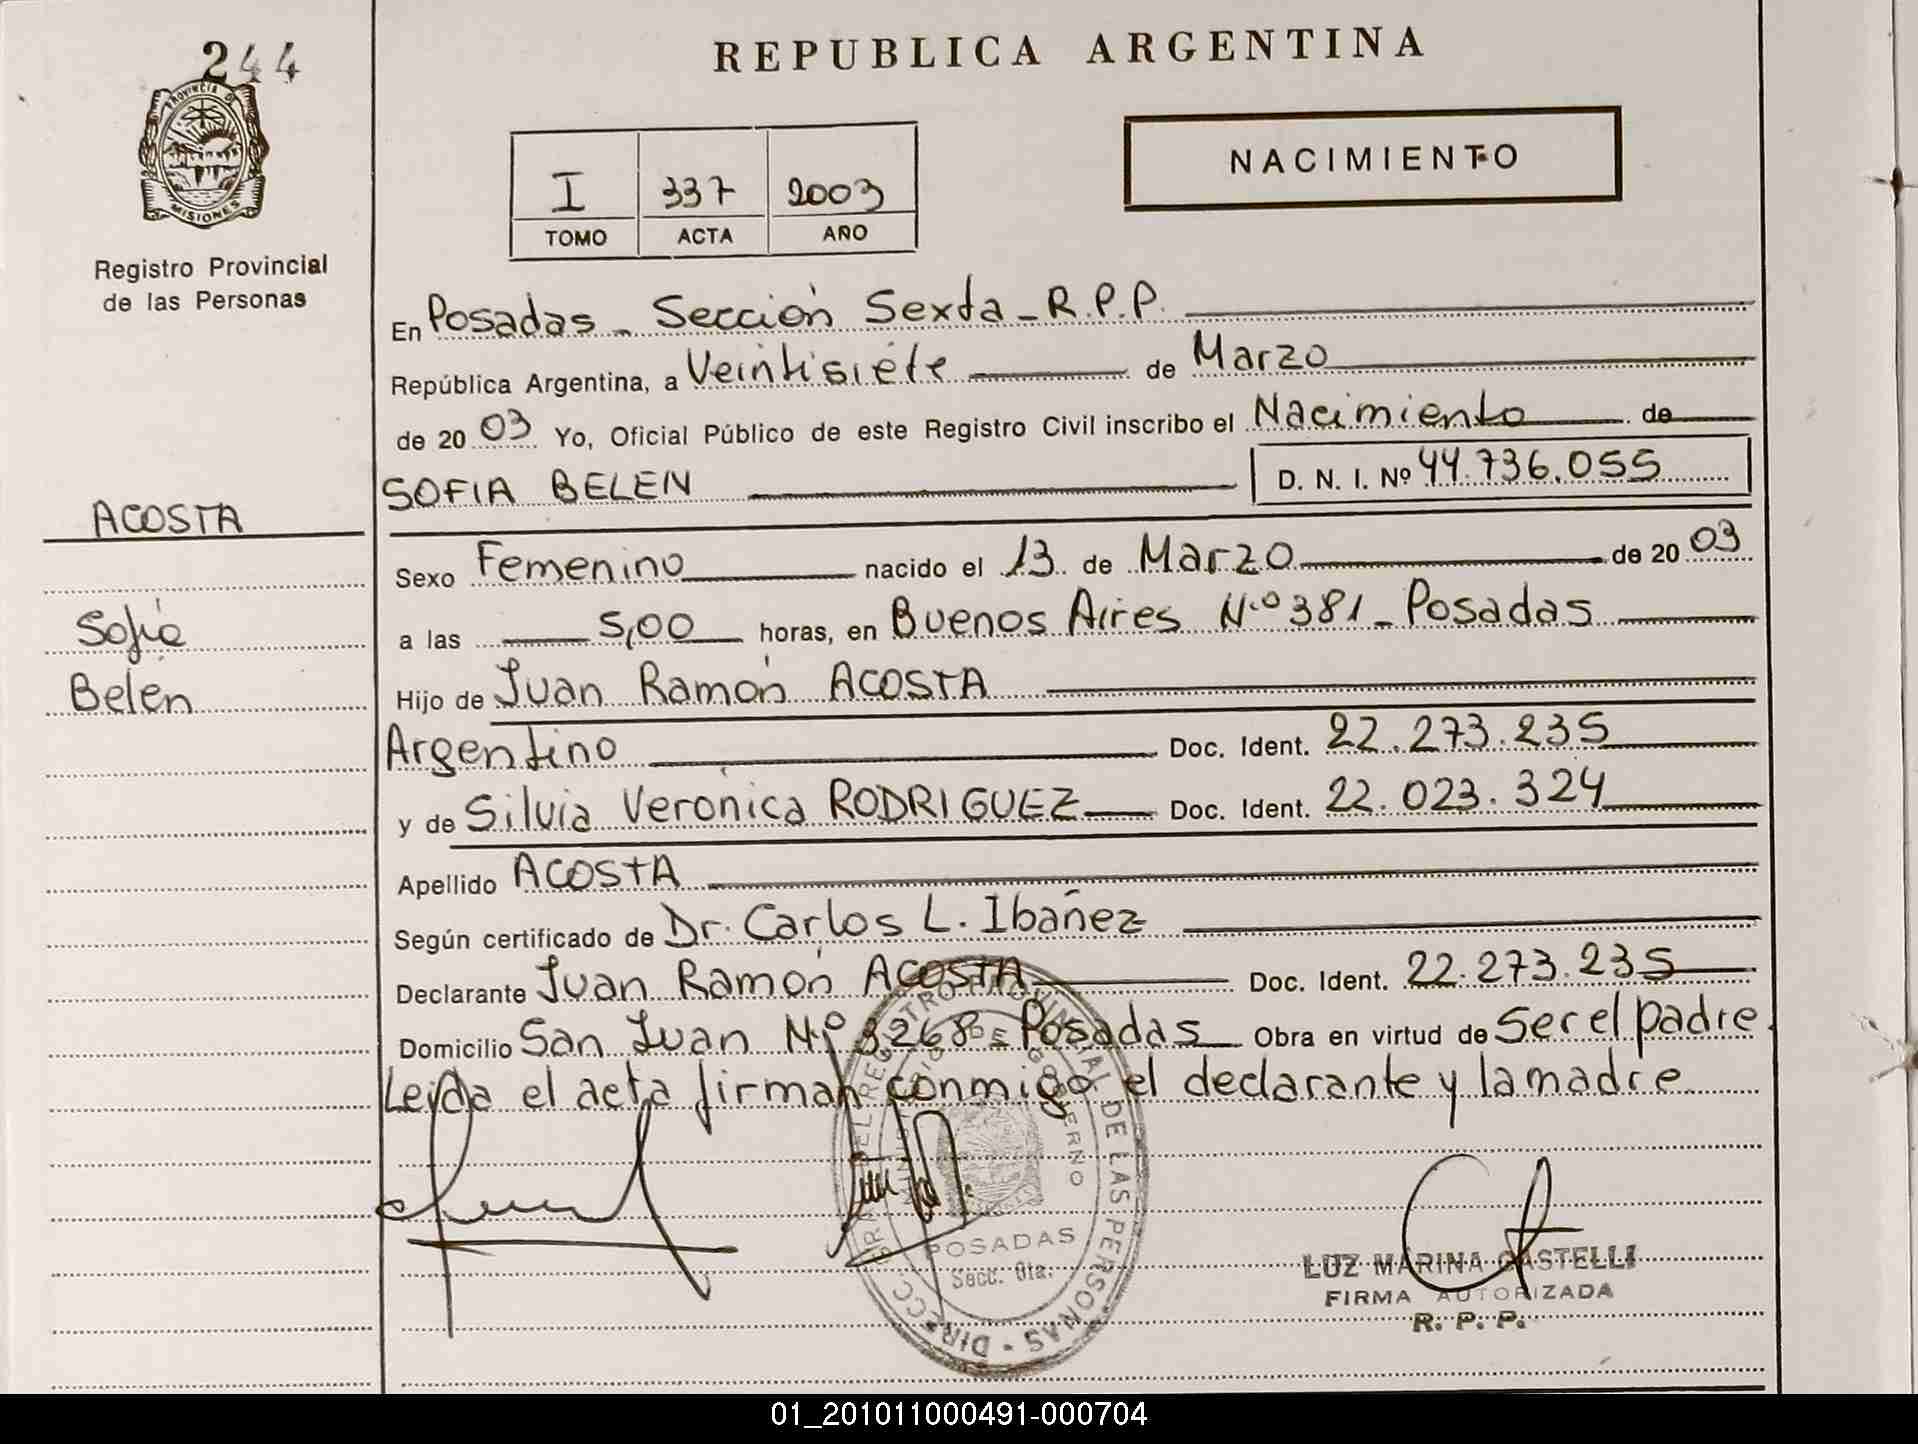 244
PROVINCIA DE
MISIONES
Registro Provincial
de las Personas
ACOSTA
Sofía
Belén
REPUBLICA ARGENTINA
I 337 2003
TOMO ACTA AÑO
NACIMIENTO
En Posadas - Sección Sexta - R.P.P.
República Argentina, a Veintisiete de Marzo
de 20 03 Yo, Oficial Público de este Registro Civil inscribo el Nacimiento de
SOFIA BELEN D. N. I. Nº 44.736.055
Sexo Femenino nacido el 13 de Marzo de 20 03
a las 5,00 horas, en Buenos Aires N.º 381 - Posadas
Hijo de Juan Ramón ACOSTA
Argentino Doc. Ident. 22.273.235
y de Silvia Verónica RODRIGUEZ Doc. Ident. 22.023.324
Apellido ACOSTA
Según certificado de Dr. Carlos L. Ibañez
Declarante Juan Ramón ACOSTA Doc. Ident. 22.273.235
Domicilio San Juan Nº 3268 - Posadas Obra en virtud de Ser el padre.
Leída el acta firman conmigo el declarante y la madre
POSADAS
Secc. 6ta.
LUZ MARINA CASTELLI
FIRMA AUTORIZADA
R. P. P.
01_201011000491-000704